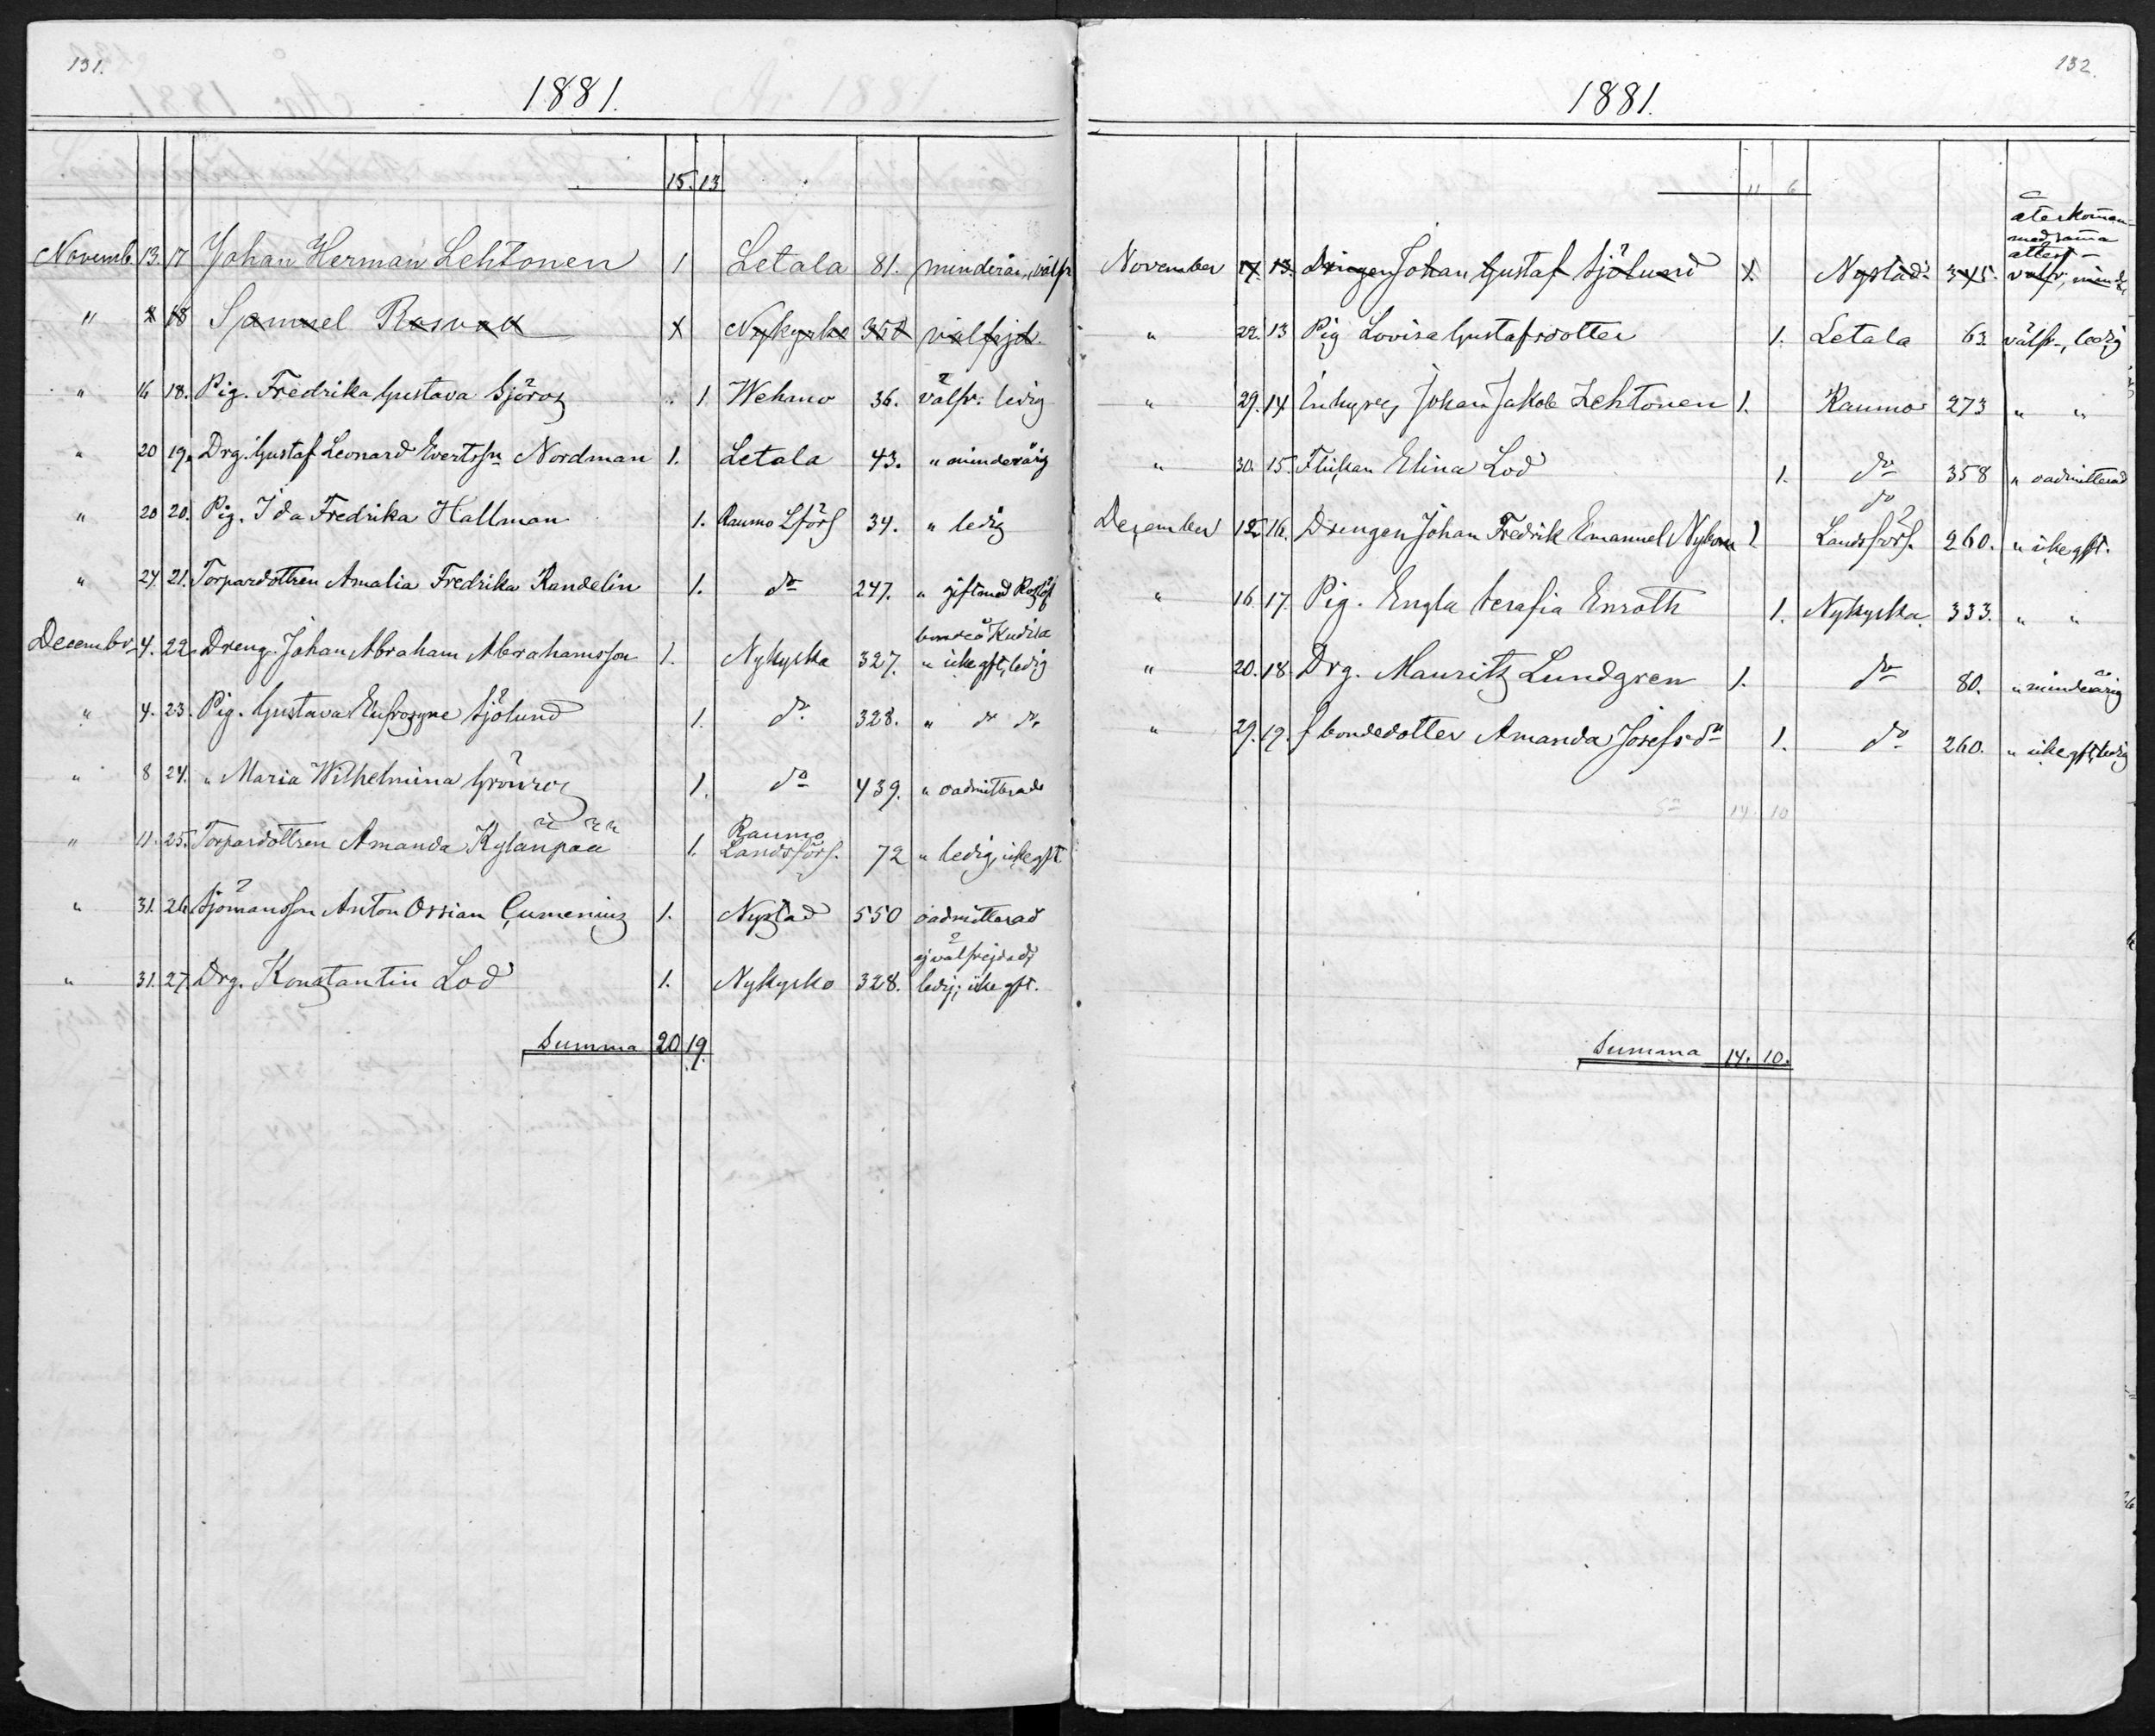 131.
1881.
15. 13
Novemb. 13. 17 Johan Herman Lehtonen 1 Letala 81. minderår., välfr
" 18 Samuel Rosvall Nykyrko välfejd.
" 16 18. Pig. Fredrika Gustava Sjöros 1 Wehmo 36. välfr. ledig
" 20 19. Drg. Gustaf Leonard Evertssn Nordman 1. Letala 43. " minderårig
" 20 20. Pig. Ida Fredrika Hallman 1. Raumo Lförs 34. " ledig
" 24. 21. Torpardottren Amalia Fredrika Randelin 1. do 247. " gift med
Decembr. 4. 22. Dreng. Johan Abraham Abrahamsson 1. Nykyrka 327. " icke gft, ledig
" 4. 23. Pig. Gustava Eufrosyne Sjölund 1. do 328. " do do
" 8 24. " Maria Wilhelmina Grönros 1. do 439. " oadmitterade
" 11. 25. Torpardottren Amanda Kylänpää 1. Raumo Landsförs. 72 " ledig, icke gft
" 31. 26 Sjömansson Anton Ossian Cumenius 1. Nystad 550 oadmitterad
ej välfrejdad,
" 31. 27. Drg. Konstantin Lod 1. Nykyrko 328. ledig, icke gft.
Summa 20 19.
132.
1881.
11 6
återkomman
med samma
attest –
November 17. 13. Drengen Johan Gustaf Sjölund 1. Nystad 345. välfr, mind.
" 22. 13 Pig Lovisa Gustafsdotter 1. Letala 63. välfr., ledig
" 29. 14. Inhyses Johan Jakob Lehtonen 1. Raumo 273 " "
" 30. 15. Flickan Elina Lod 1. do 358 " oadmitterad
do
December 12 16. Drengen Johan Fredrik Emanuel Nybom 1 Landsförs. 260. " icke gft.
" 16. 17. Pig. Engla Serafia Enroth 1. Nykyrka. 333. " "
" 20. 18. Drg. Mauritz Lundgren 1. do 80. " minderårig
" 29. 19. f bondedotter Amanda Josefsdr 1. do 260. " icke gft, ledig
Sa 14. 10
Summa 14. 10.